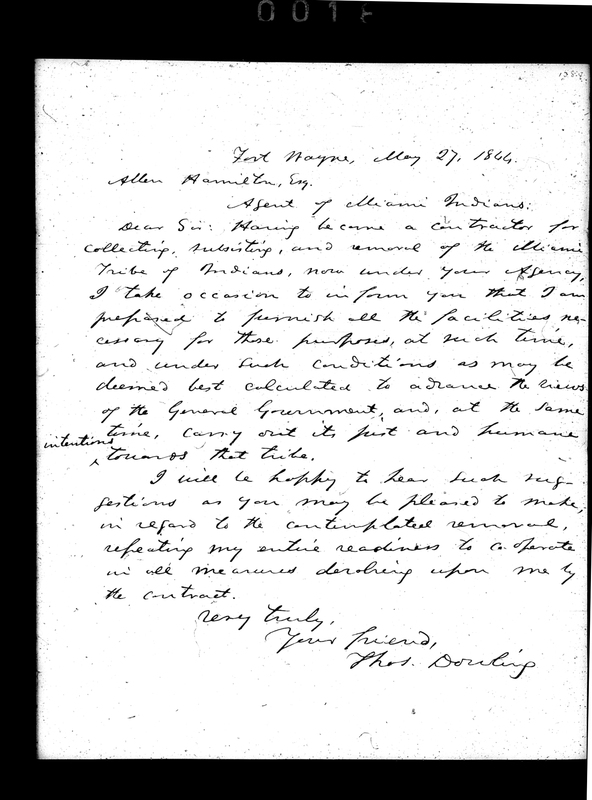 Fort Wayne, May 27, 1844.
Allen Hamilton, Esq.
Agent of Miami Indians:
Dear Sir: Having become a contractor for
collecting, subsisting, and removal of the Miami
Tribe of Indians, now under your Agency,
I take occasion to inform you that I am
prepared to furnish all the facilities ne-
cessary for those purposes, at such time,
and under such conditions as may be
deemed best calculated to advance the views
of the General Government, and, at the same
time, carry out its just and humane
intentions
towards that tribe.
I will be happy to hear such sug-
gestions as you may be pleased to make,
in regard to the contemplated removal,
repeating my entire readiness to co-operate
in all measures devolving upon me by
the contract.
Very truly,
Your friend,
Thos. Dowling